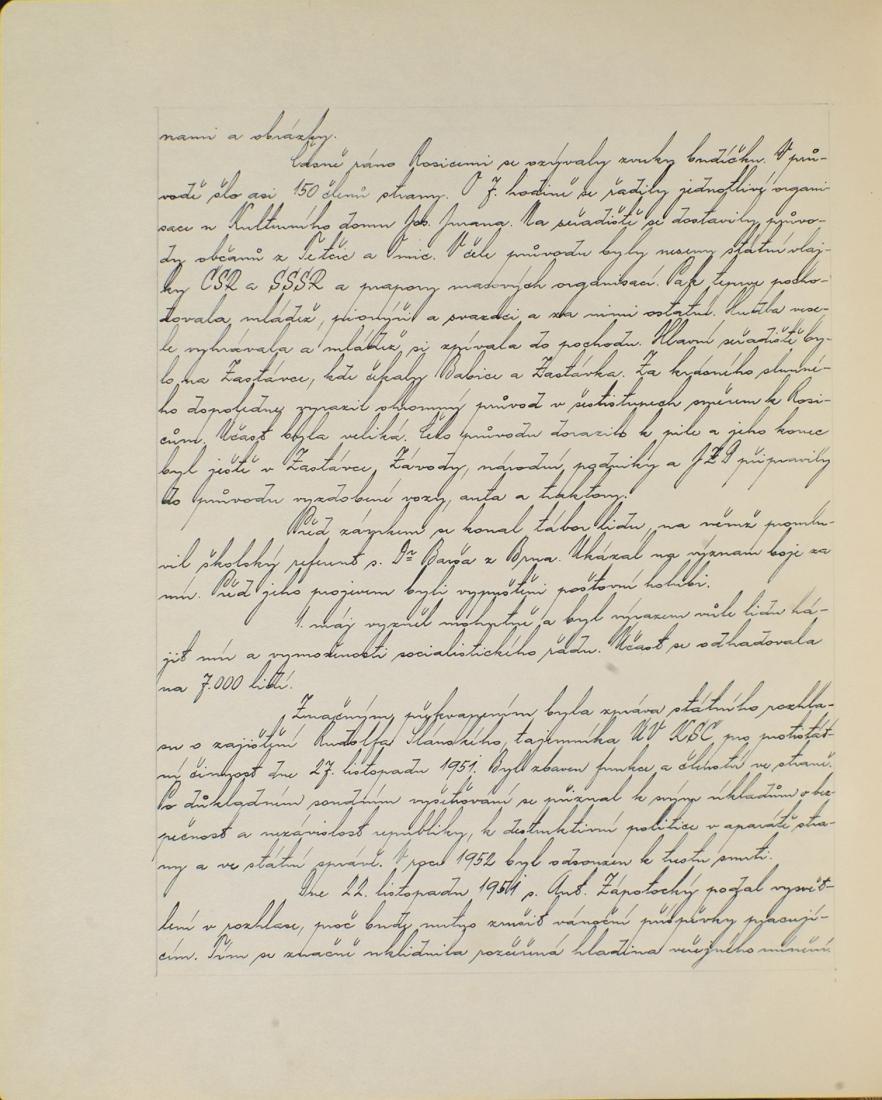 nami a obrázky.
Časně ráno Rosicemi se ozývaly zvuky budíčku. V prů-
vodě šlo asi 150 členů strany. O 7. hodině se řadily jednotlivé organi-
sace u Kulturního domu Jos. Jurana. Na seřadiště se dostavily průvo-
dy občanů z Tetčic a Omic. V čele průvodu byly neseny státní vlaj-
ky ČSR a SSSR a prapory masových organisací. Pak teprve pocho-
dovala mládež, pionýři a svazáci a za nimi ostatní. Hudba vese-
le vyhrávala a mládež si zpívala do pochodu. Hlavní seřadiště by-
lo na Zastávce, kde čekaly Babice a Zastávka. Za krásného slunné-
ho dopoledne vyrazil ohromný průvod v šestistupech směrem k Rosi-
cům. Účast byla veliká. Čelo průvodu dorazilo k pile a jeho konec
byl ještě v Zastávce. Závody, národní podniky a JZD připravily
do průvodu vyzdobené vozy, auta a traktory.
Před zámkem se konal tábor lidu, na němž promlu-
vil školský referent s. Dr Bavša z Brna. Ukázal na význam boje za
mír. Před jeho projevem byli vypuštěni poštovní holubi.
1. máj vyzněl mohutně a byl výrazem vůle lidu há-
jit mír a vymoženosti socialistického řádu. Účast se odhadovala
na 7.000 lidí.
Značným překvapením byla zpráva státního rozhla-
su o zajištění Rudolfa Slánského, tajemníka ÚV KSČ pro protistát-
ní činnost dne 27. listopadu 1951. Byl zbaven funkce a členství ve straně.
Po důkladném soudním vyšetřování se přiznal k svým úkladům o bez-
pečnost a nezávislost republiky, k destruktivní politice v aparátě stra-
ny a ve státní správě. V roce 1952 byl odsouzen k trestu smrti.
Dne 22. listopadu 1951 s. Ant. Zápotocký podal vysvět-
lení v rozhlase, proč bude nutno zrušit vánoční příspěvky pracují-
cím. Tím se značně uklidnila rozčeřená hladina veřejného mínění